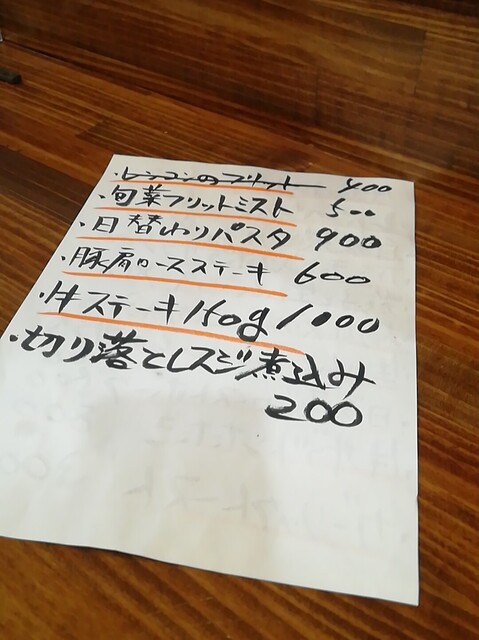 ・レンコンのフリット 400
・旬菜フリットミスト 500
・日替わりパスタ 900
・豚肩ロースステーキ 600
・牛ステーキ150g 1000
・切り落としスジ煮込み
200